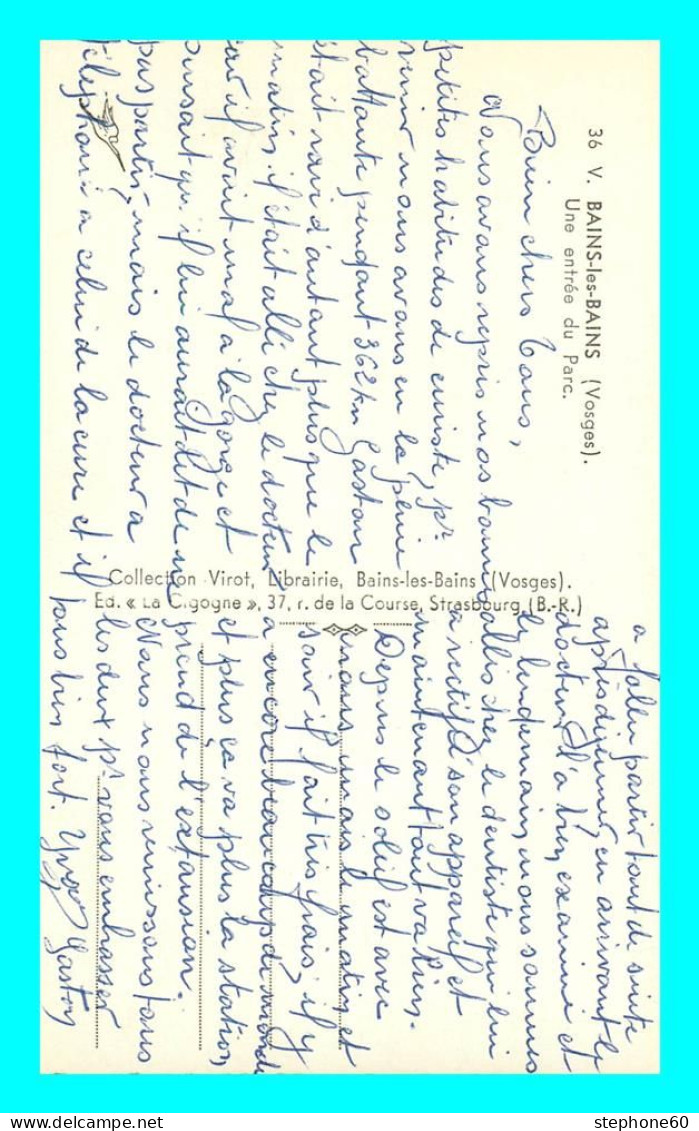 36 V. BAINS-les-BAINS (Vosges).
Une entrée du Parc.
Bien chers Tous,
Nous avons repris nos bonnes
petites habitudes de curiste, pr
venir nous avons eu la pluie
battante pendant 362 km Gaston
était ravi d'autant plus que le
matin il était allé chez le docteur
car il avait mal à la gorge et
pensait qu'il lui aurait dit de ne
pas partir, mais le docteur a
téléphoné à celui de la cure et il
a fallu partir tout de suite
après déjeuner, en arrivant le
docteur l'a bien examiné et
le lendemain nous sommes
allés chez le dentiste qui lui
a rectifié son appareil et
maintenant tout va bien.
Depuis le soleil est avec
nous, mais le matin et
soir il fait très frais, il y
a encore beaucoup de monde
et plus ça va plus la station
prend de l'extension.
Nous nous réunissons tous
les deux pr vous embrasser
tous bien fort. Gaston
Collection Virot, Librairie, Bains-les-Bains (Vosges).
Ed. « La Cigogne », 37, r. de la Course, Strasbourg (B.-R.)
stephone60